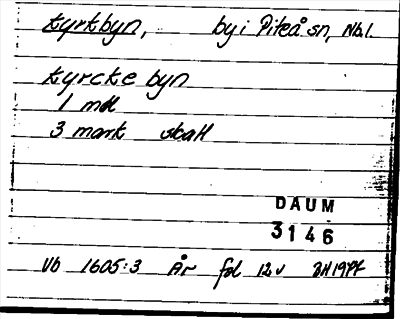 kyrkbyn, by i Piteå sn, Nbl.
kyrcke byn
1 mtl
3 mark skatt
DAUM
3146
Vb 1605:3 År fol 12v